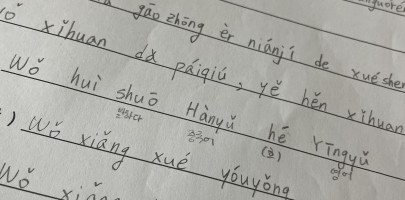 gāo zhōng èr niánjí de xuéshe
xǐhuan dǎ páiqiú, yě hěn xǐhuan
Wǒ huì shuō Hànyǔ hé Yīngyǔ
말하다 중국어 (와) 영어
) Wǒ xiǎng xué yóuyǒng
Wǒ xiǎng